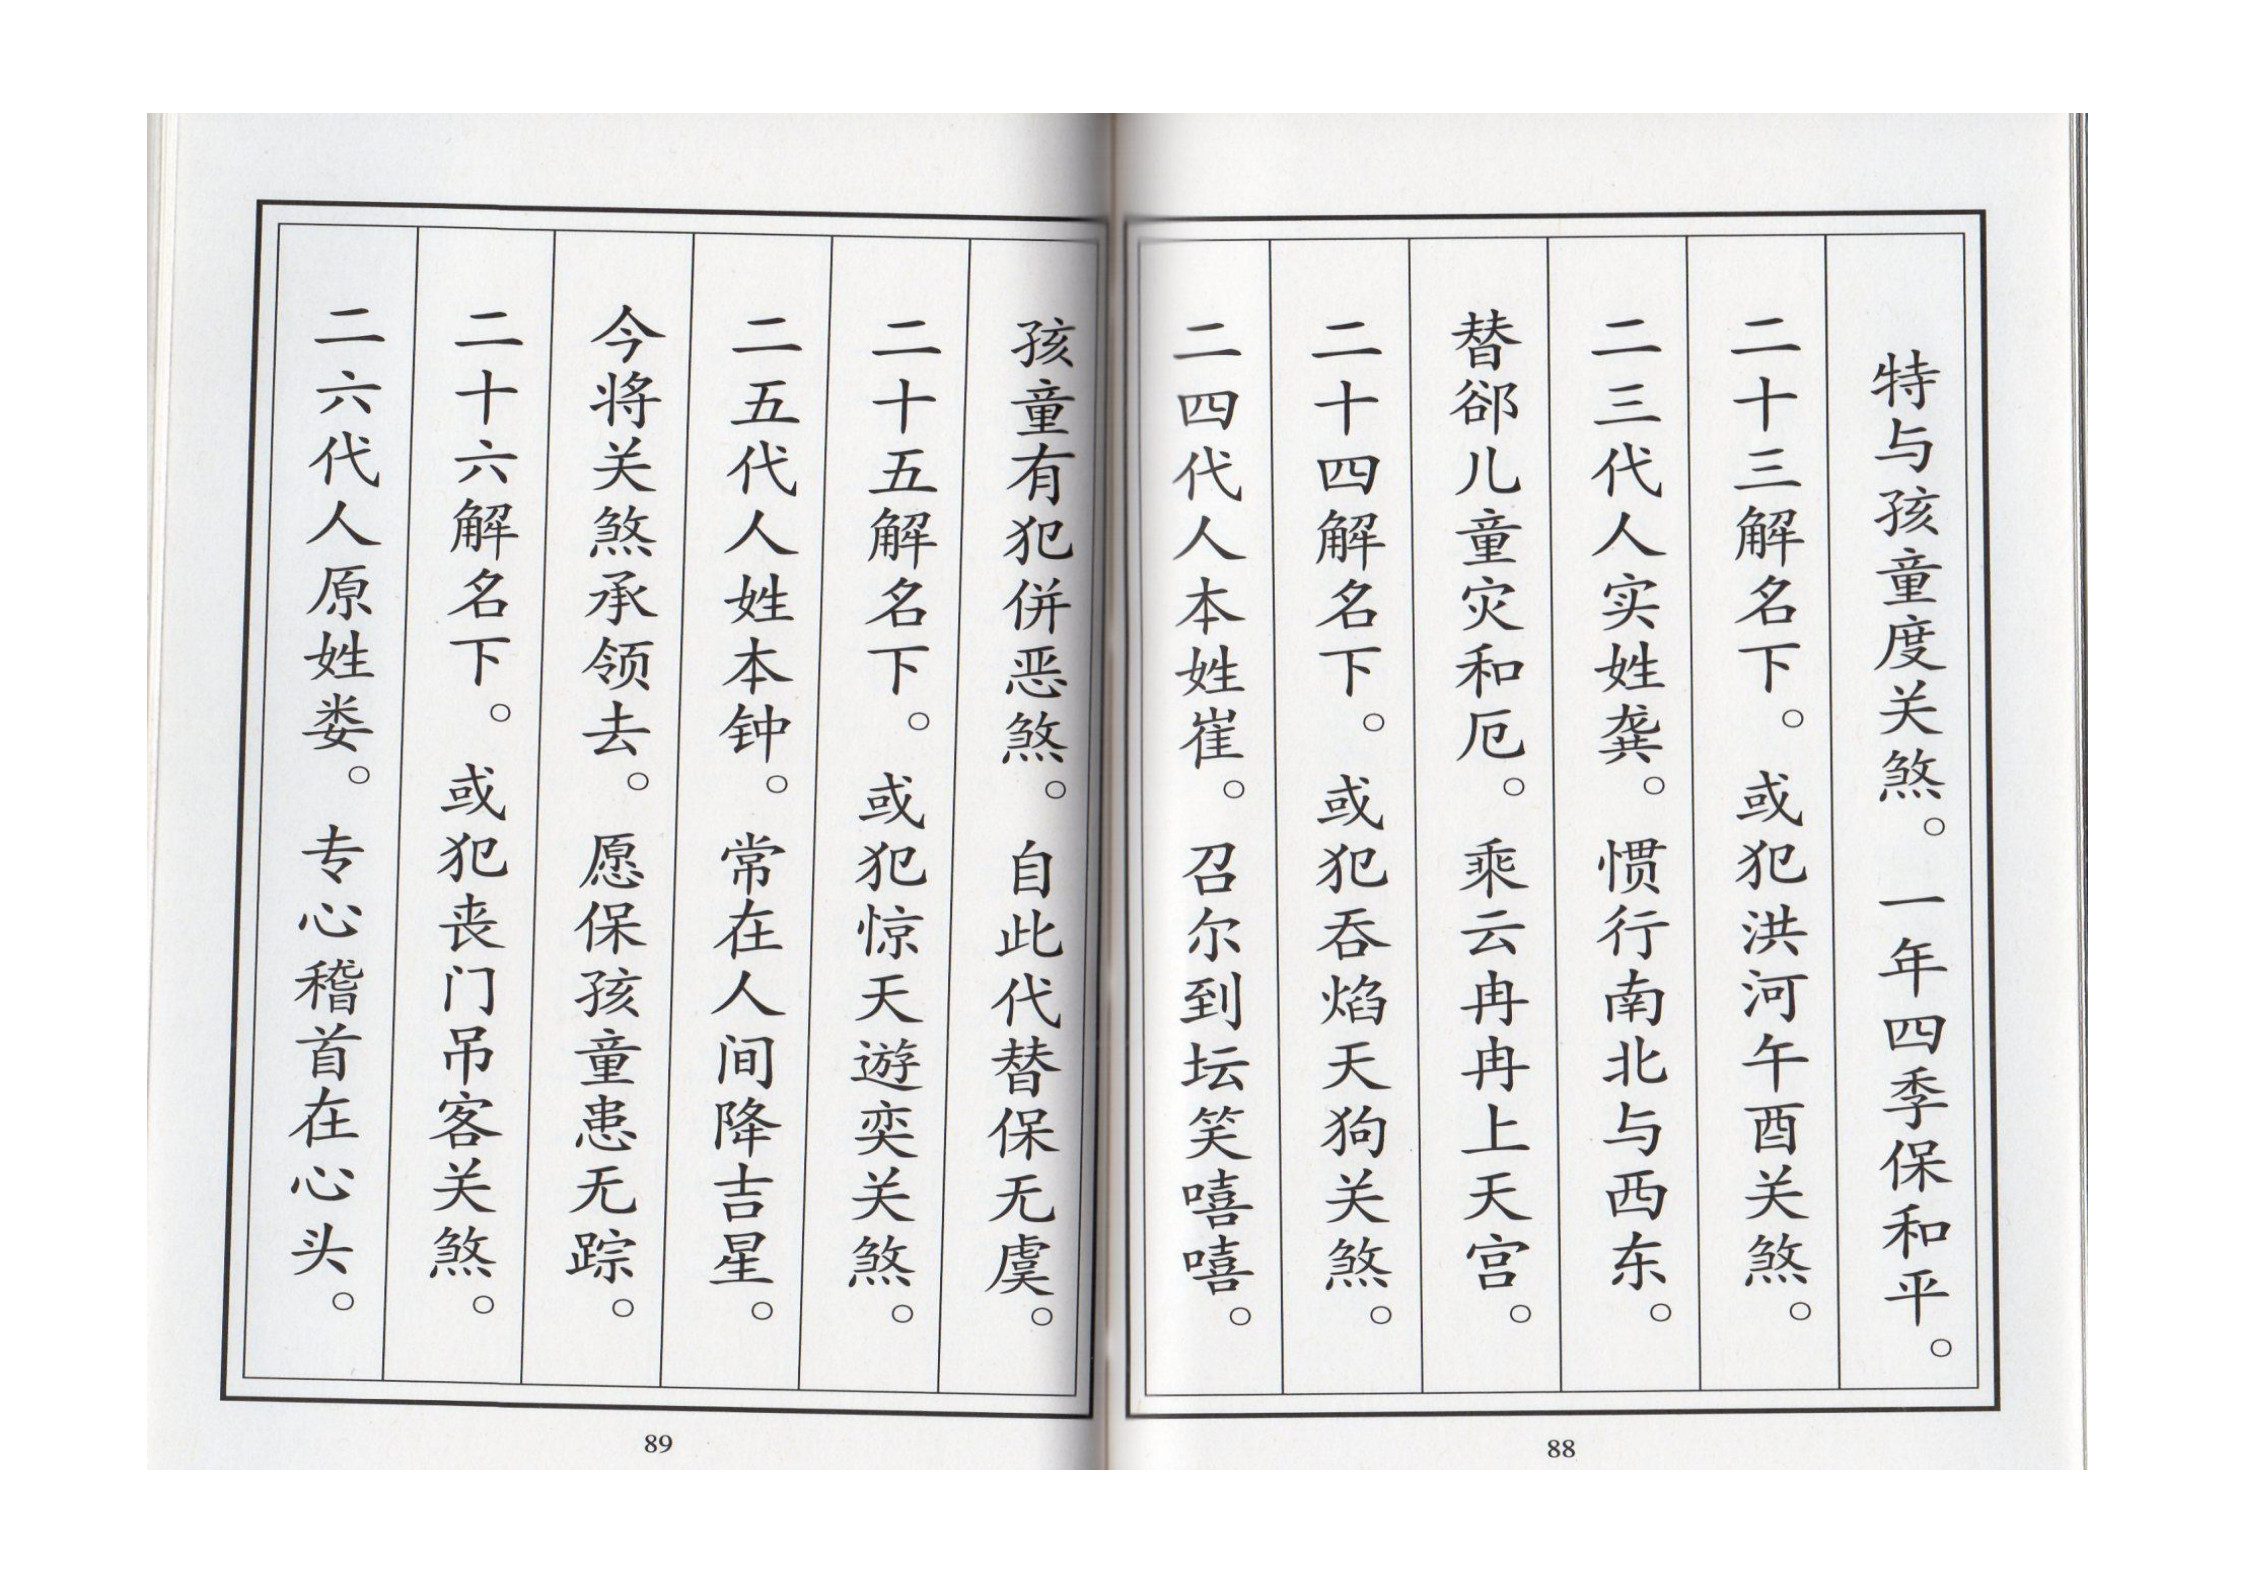 特与孩童度关煞。一年四季保和平。
二十三解名下。或犯洪河午酉关煞。
二三代人实姓龚。惯行南北与西东。
替郤儿童灾和厄。乘云冉冉上天宫。
二十四解名下。或犯吞焰天狗关煞。
二四代人本姓崔。召尔到坛笑嘻嘻。
88
孩童有犯併恶煞。自此代替保无虞。
二十五解名下。或犯惊天遊奕关煞。
二五代人姓本钟。常在人间降吉星。
今将关煞承领去。愿保孩童患无踪。
二十六解名下。或犯丧门吊客关煞。
二六代人原姓娄。专心稽首在心头。
89